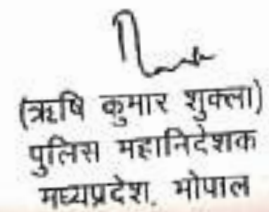 (ऋषि कुमार शुक्ला)
पुलिस महानिदेशक
मध्यप्रदेश, भोपाल